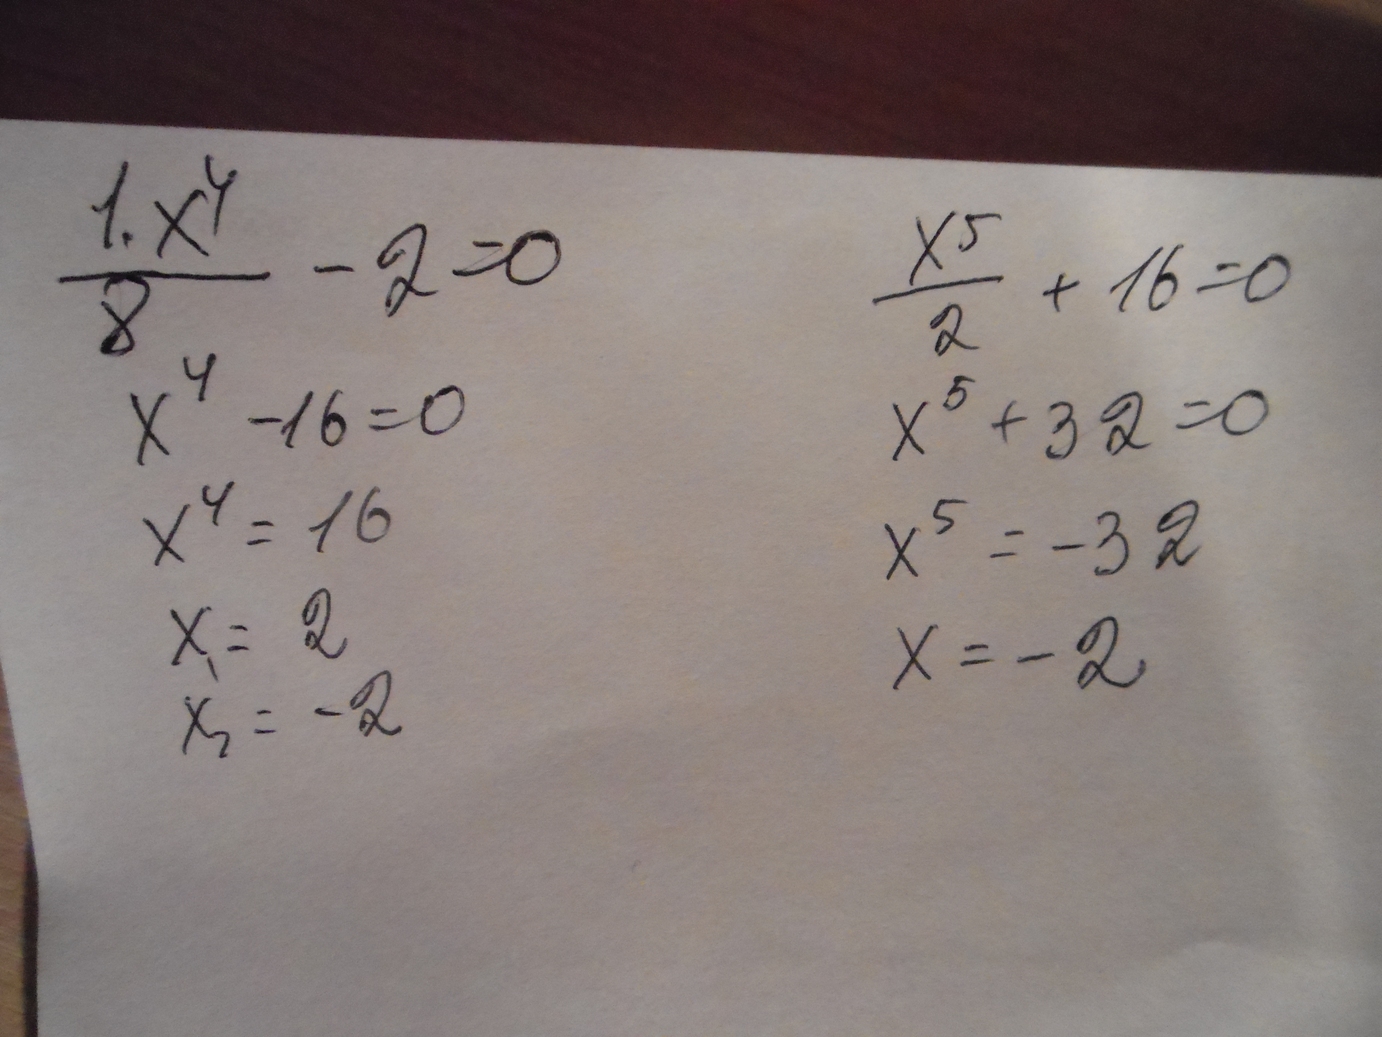 1·x⁴/8 - 2 = 0
x⁴ - 16 = 0
x⁴ = 16
x₁ = 2
x₂ = -2
x⁵/2 + 16 = 0
x⁵ + 32 = 0
x⁵ = -32
x = -2